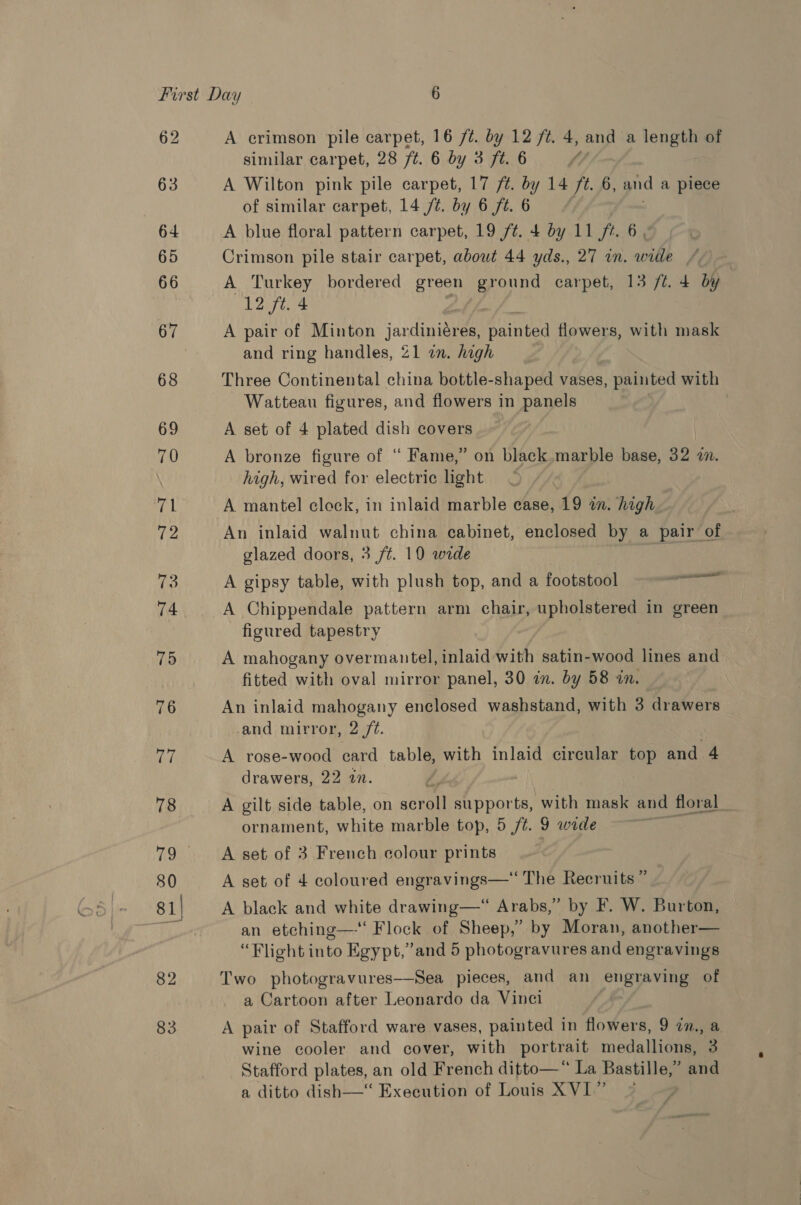 First Day 6
62 A crimson pile carpet, 16 ft. by 12 ft. 4, and a length of
similar carpet, 28 ft. 6 by 3 ft. 6
63 A Wilton pink pile carpet, 17 ft. by 14 ft. 6, and a piece
of similar carpet, 14 ft. by 6 ft. 6
64 A blue floral pattern carpet, 19 ft. 4 by 11 ft. 6
65 Crimson pile stair carpet, about 44 yds., 27 in. wide
66 A Turkey bordered green ground carpet, 13 ft. 4 by
12 ft. 4
67 A pair of Minton jardinières, painted flowers, with mask
and ring handles, 21 in. high
68 Three Continental china bottle-shaped vases, painted with
Watteau figures, and flowers in panels
69 A set of 4 plated dish covers
70 A bronze figure of “ Fame,” on black marble base, 32 in.
high, wired for electric light
71 A mantel clock, in inlaid marble case, 19 in. high
72 An inlaid walnut china cabinet, enclosed by a pair of
glazed doors, 3 ft. 10 wide
73 A gipsy table, with plush top, and a footstool
74 A Chippendale pattern arm chair, upholstered in green
figured tapestry
75 A mahogany overmantel, inlaid with satin-wood lines and
fitted with oval mirror panel, 30 in. by 58 in.
76 An inlaid mahogany enclosed washstand, with 3 drawers
and mirror, 2 ft.
77 A rose-wood card table, with inlaid circular top and 4
drawers, 22 in.
78 A gilt side table, on scroll supports, with mask and floral
ornament, white marble top, 5 ft. 9 wide
79 A set of 3 French colour prints
80 A set of 4 coloured engravings—“ The Recruits ”
81 A black and white drawing—“ Arabs,” by F. W. Burton,
an etching—“ Flock of Sheep,” by Moran, another—
“Flight into Egypt,” and 5 photogravures and engravings
82 Two photogravures—Sea pieces, and an engraving of
a Cartoon after Leonardo da Vinci
83 A pair of Stafford ware vases, painted in flowers, 9 in., a
wine cooler and cover, with portrait medallions, 3
Stafford plates, an old French ditto—“ La Bastille,” and
a ditto dish—“ Execution of Louis XVI.”